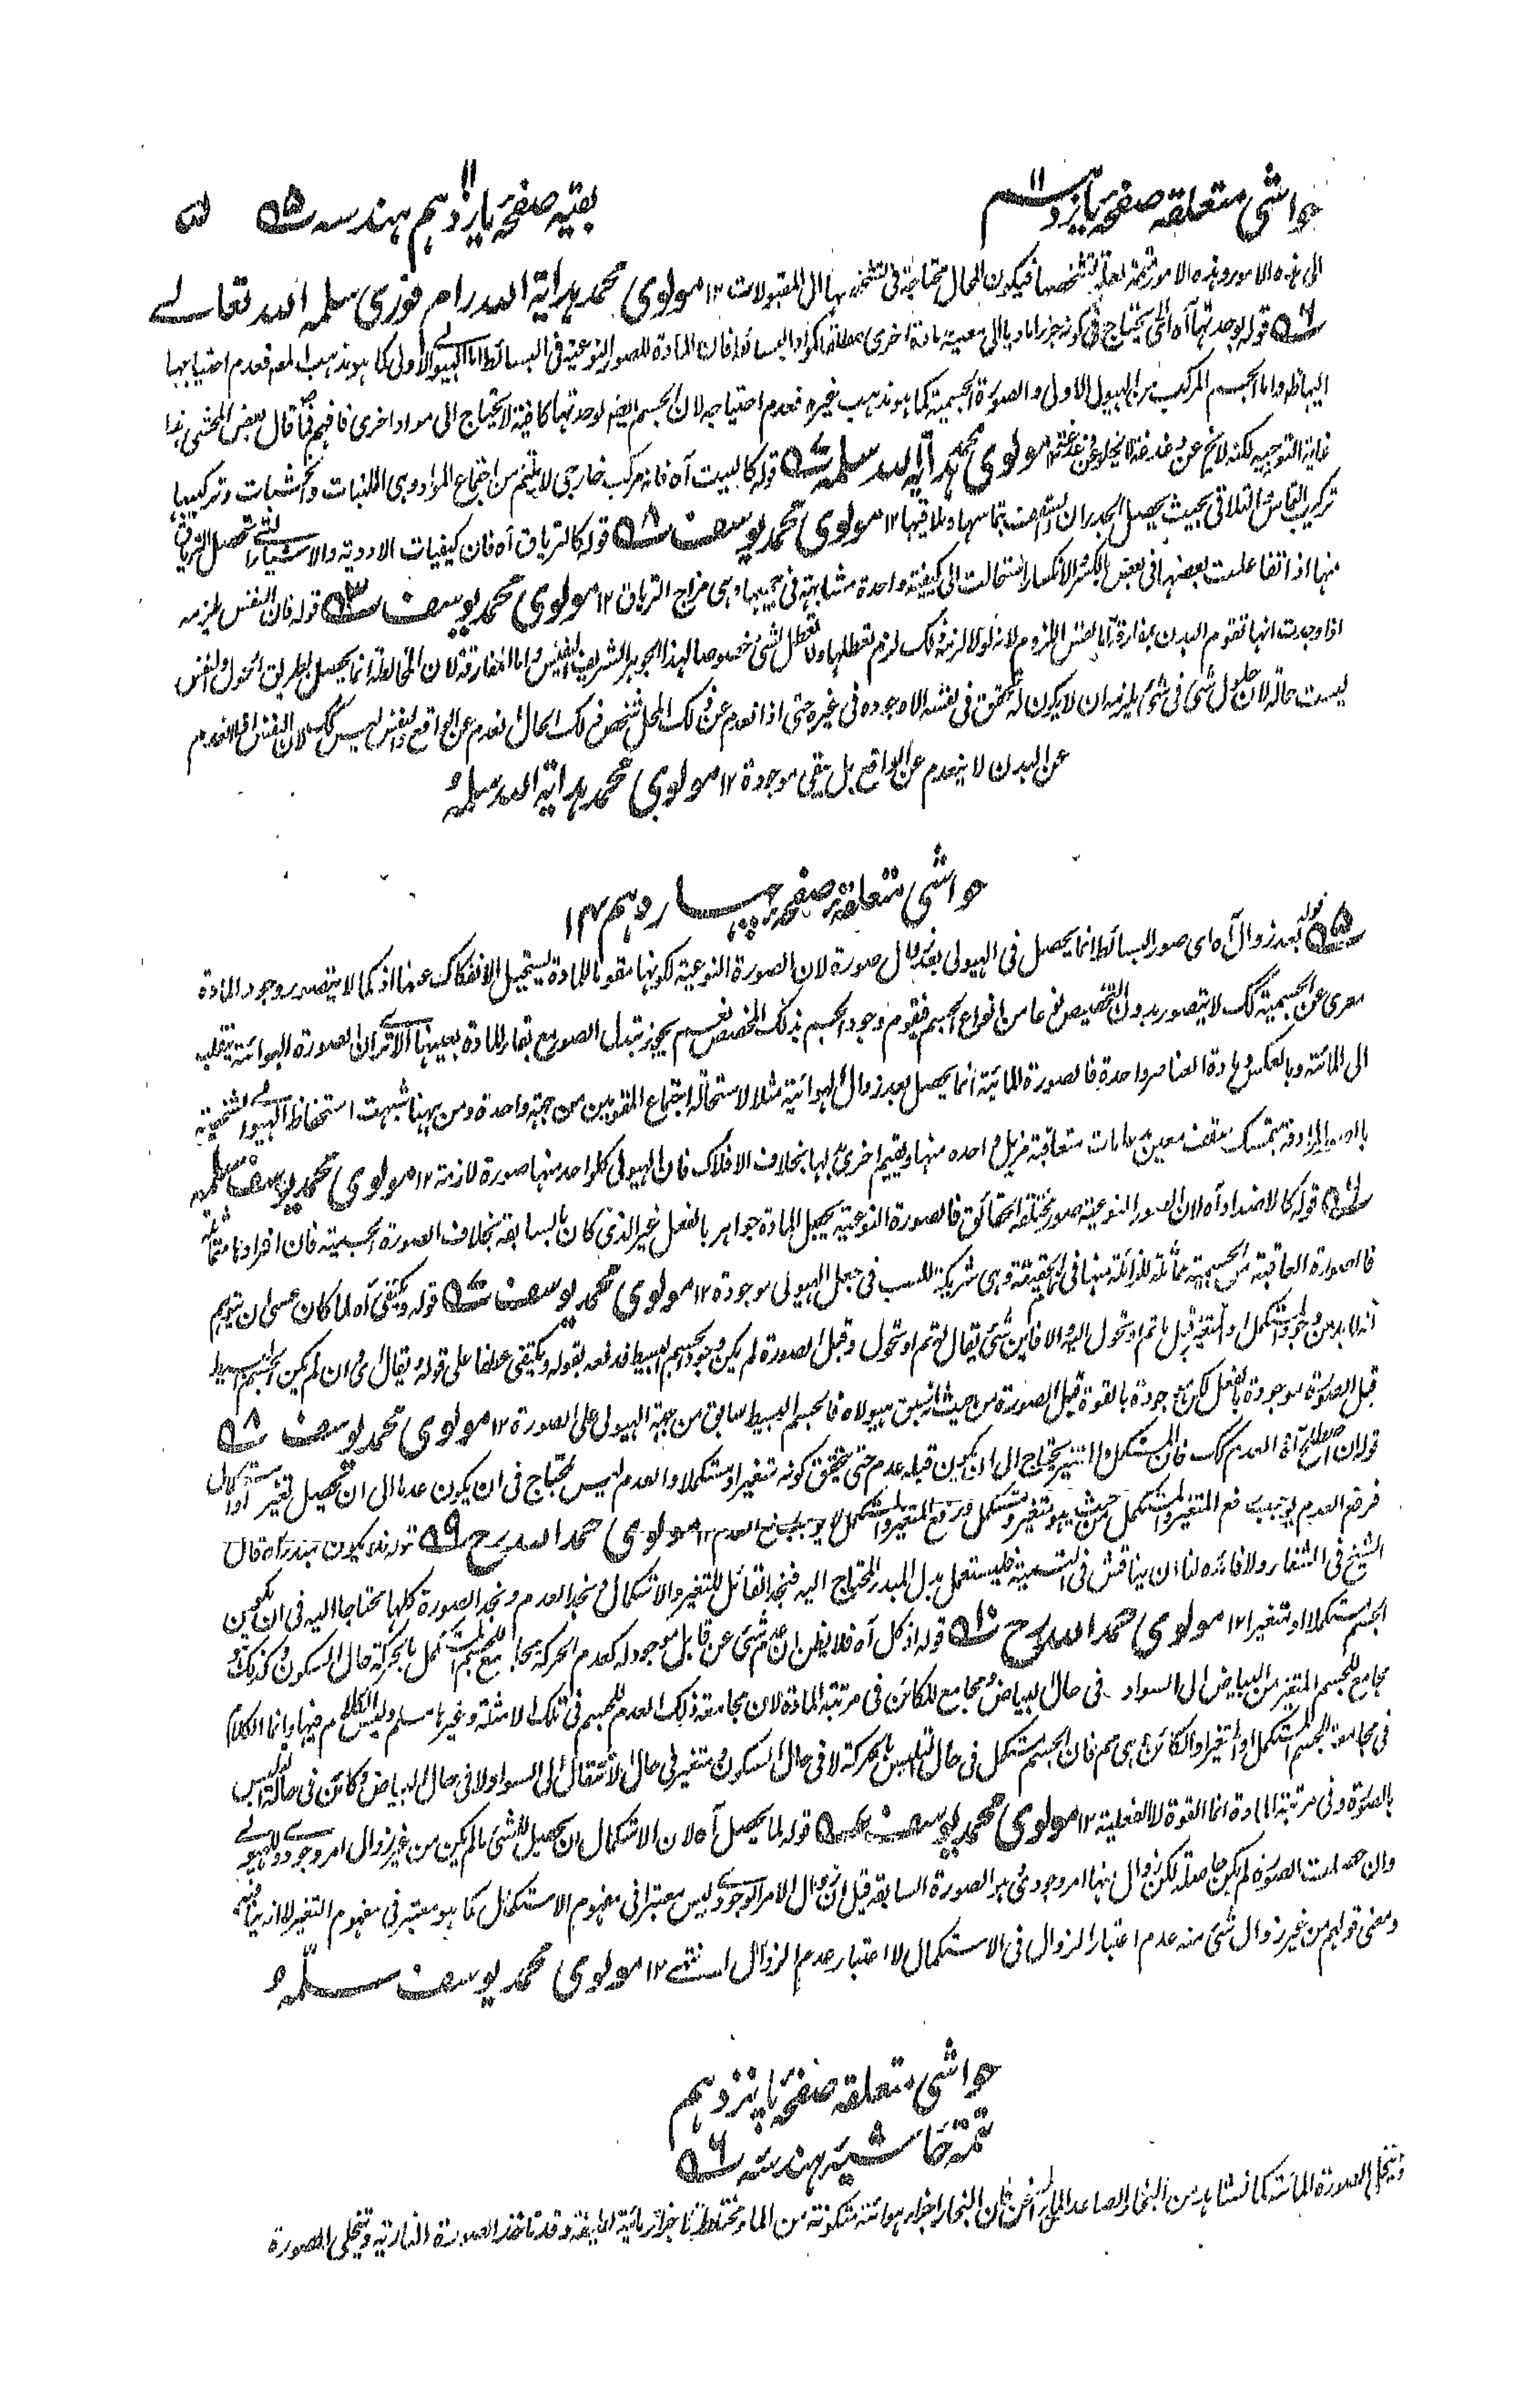 حواشی متعلقہ صفحہ یازدہم ۱۱
بقیہ صفحہ یازدہم ۱۱ ہندسہ ۵
الی ہذہ الامور وہذہ الامور ثمتہ لعلۃ تشخصہا فیکون المحال محتاجۃ فی تشخصہا الی المقبولات ۱۲ مولوی محمد ہدایۃ اللہ رام فوری سلمہ اللہ تعالے
۶ قولہ لوحدتہا آہ ای یحتاج فی کونہ جزءا مادیا الی معیۃ مادۃ اخری مطلقا کمواد البسائط فان المادۃ للصور النوعیۃ فی البسائط اما الہیولی الاولی کما ہو مذہب المص فعدم احتیاجہا
الیہا ظ واما الجسم المرکب من الہیولی الاولی والصورۃ الجسمیۃ کما ہو مذہب غیرہ فعدم احتیاجہ لان الجسم ایضا لوحدتہا کافیۃ لا یحتاج الی مواد اخری فافہم قال بعض المحشی ہذا
غایۃ التوجیہ لکنہ لا یخ عن مولوی محمد ہدایۃ اللہ سلمہ ۷ قولہ کالبیت آہ فانہ مرکب خارجی لا یلتئم من اجتماع المواد وہی اللبنات والخشبات وترکیبہا
ترکیب التماس والتلاقی بحیث یحصل الجدران والسقف بتماسہا وتلاقیہا ۱۲ مولوی محمد یوسف ۸ قولہ کالتریاق آہ فان کیفیات الادویۃ والاشیاء التی تحصل التریاق
منہا اذا تفاعلت بعضہا فی بعض بالکسر والانکسار استحالت الی کیفیۃ واحدۃ متشابہۃ فی جمیعہا وہی مزاج التریاق ۱۲ مولوی محمد یوسف ۳ قولہ فان النفس یلزمہ
اذا وجدت انہا تقوم البدن مفارقۃ اما نفس اللزوم لانہ لولا لزم ذلک لزم تعطلہا ولا تعطل لشیئ خصوصا لہذا الجوہر الشریف النفیس واما المفارقۃ لان المخالطۃ انما یحصل بطریق الحلول والنفس
لیست حالۃ لان حلول شئ فی شئ یلزمہ ان لا یکون لہ تحقق فی نفسہ الا وجودہ فی غیرہ حتی اذا انعدم عن ذلک المحل تشخص ذلک الحال انعدم عن الواقع والنفس لیس کک لان النفس اذا انعدم
عن البدن لا ینعدم عن الواقع بل یبقی موجودۃ ۱۲ مولوی محمد ہدایۃ اللہ سلمہ
حواشی متعلقہ صفحہ چہاردہم ۱۴
۵ قولہ بعد زوال آہ ای صور البسائط انما یحصل فی الہیولی بعد زوال صورۃ لان الصورۃ النوعیۃ لکونہا مقومۃ للمادۃ یستحیل الانفکاک عنہا اذ کما لا یتصور وجود المادۃ
معری عن الجسمیۃ کک لا یتصور بدون التخصیص نوعا من انواع الجسم فیقوم وجود الجسم بذلک المخصص نعم یجوز تبدل الصور مع بقاء المادۃ بعینہا الا تری ان الصورۃ الہوائیۃ ینقلب
الی المائیۃ وبالعکس ومادۃ العناصر واحدۃ فالصورۃ المائیۃ انما یحصل بعد زوال الہوائیۃ مثلا لاستحالۃ اجتماع المقومین من جہۃ واحدۃ ومن ہہنا شبہت استحفاظ الہیولی الشخصیۃ
بالصور المترادفۃ بتمسک سقف معین بدعامات متعاقبۃ مزیل واحدۃ منہا ویقیم اخری بدلہا بخلاف الافلاک فان الہیولی کل واحد منہا صورۃ لازمۃ ۱۲ مولوی محمد یوسف سلمہ
۶ قولہ کالاضداد آہ لان الصور النوعیۃ صور مختلفۃ الحقائق فالصورۃ النوعیۃ یجعل المادۃ جواہر بالفعل غیر الذی کان بالسابقۃ بخلاف الصورۃ الجسمیۃ فان افرادہا متماثلۃ
فالصورۃ العاقبۃ من الجسمیۃ مماثلۃ للزائلۃ منہا فی الحقیقۃ وہی شریکۃ للسبب فی جعل الہیولی موجودۃ ۱۲ مولوی محمد یوسف ۷ قولہ ویکتفی آہ لما کان عسی ان یتوہم
انہ لا بد من وجود المستکمل والمتغیر قبل ما تم او تحول الیہ والا فای شئ یقال تم او تحول وقبل الصورۃ لم یکن وجود الجسم البسیط فدفعہ بقولہ ویکتفی عطفا علی قولہ ویقال ای وان لم یکن الجسم البسیط
قبل الصورۃ موجودۃ بالفعل لکن موجودۃ بالقوۃ قبل الصورۃ من حیث انہ سبق ہیولاہ فالجسم البسیط سابق من جہۃ الہیولی علی الصورۃ ۱۲ مولوی محمد یوسف ۸
قولہ ان اصطلح آہ العدم کک فان المستکمل والمتغیر یحتاج الی ان یکون قبلہ عدم حتی یتحقق کونہ متغیرا ومستکملا والعدم لیس محتاج فی ان یکون عدما الی ان یحصل تغیر او استکمال
فرفع العدم یوجب رفع المتغیر والمستکمل من حیث ہو متغیر ومستکمل ورفع المتغیر والمستکمل لا یوجب رفع العدم ۱۲ مولوی حمد اللہ رح ۹ قولہ فلا یکون مبدء آہ قال
الشیخ فی الشفاء ولا فائدہ لنا ان یناقش فی التسمیۃ فلیستعمل بدل المبدء المحتاج الیہ فنجد القائل للتغیر والاستکمال ونجد العدم ونجد الصورۃ کلہا محتاجا الیہ فی ان یکون
الجسم مستکملا او متغیرا ۱۲ مولوی حمد اللہ رح ۱۰ قولہ اذ کل آہ فلا یظن ان عدم شئ عن قابل موجود لہ کعدم الحرکۃ یجامع للجسم المستکمل بالحرکۃ حال السکون وکذلک
مجامع للجسم المتغیر من البیاض الی السواد فی حال البیاض ومجامع للکائن فی مرتبۃ المادۃ لان مجامعۃ ذلک العدم للجسم فی تلک الامثلۃ وغیرہا مسلم ولیس الکلام فیہا وانما الکلام
فی مجامعۃ الجسم المستکمل او المتغیر او الکائن بما ہی ہم فان الجسم مستکمل فی حال التلبس بالحرکۃ لا فی حال السکون ومتغیر فی حال الانتقال الی السواد لا فی حال البیاض وکائن فی حالۃ التلبس
بالصورۃ وفی مرتبۃ المادۃ انما القوۃ لا الفعلیۃ ۱۲ مولوی محمد یوسف قولہ لما یحصل آہ لان الاستکمال ان یحصل للشئ ما لم یکن من غیر زوال امر وجودی
وان حصلت الصورۃ لم یکن حاصلۃ لکن زوال منہا امر وجودی ہو الصورۃ السابقۃ قیل ان زوال الامر الوجودی لیس معتبرا فی مفہوم الاستکمال کما ہو معتبر فی مفہوم التغیر لا انہ
ومعنی قولہم من غیر زوال شئ منہ عدم اعتبار الزوال فی الاستکمال لا اعتبار عدم الزوال انتہے ۱۲ مولوی محمد یوسف سلمہ
حواشی متعلقہ صفحہ پانزدہم
تتمۃ حاشیہ ہندسہ ۶
وتنخلع الصورۃ المائیۃ کما نشاہد من البخار الصاعد فان البخار اجزاء ہوائیۃ متکونۃ من الماء مختلطۃ باجزاء مائیۃ لطیفۃ وقد تاخذ الصورۃ الناریۃ وتخلی الصورۃ